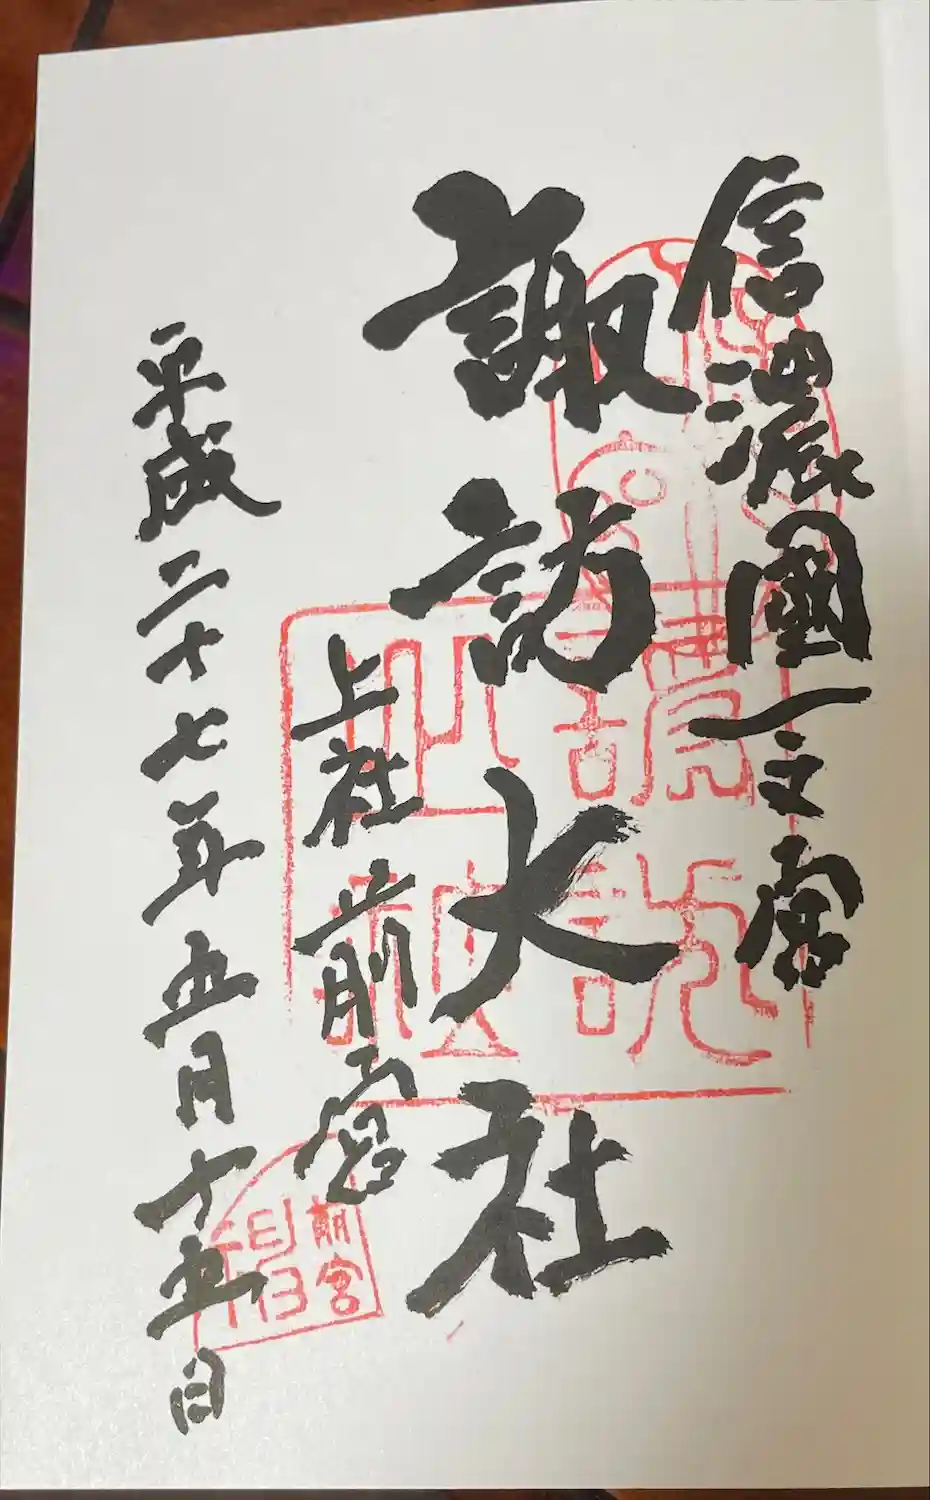 信濃國一之宮
諏訪大社
上社前宮
平成二十七年五月十五日
前宮